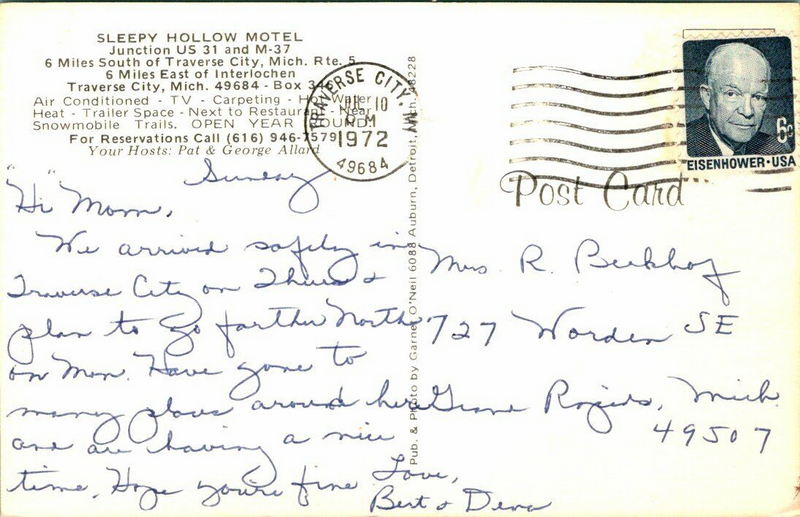 SLEEPY HOLLOW MOTEL
Junction US 31 and M-37
6 Miles South of Traverse City, Mich. Rte. 5
6 Miles East of Interlochen
Traverse City, Mich. 49684 - Box
Air Conditioned - TV - Carpeting - Water
Heat - Trailer Space - Next to Restaurant - Near
Snowmobile Trails. OPEN YEAR ROUND
For Reservations Call (616) 946-7579
Your Hosts: Pat & George Allard
TRAVERSE CITY,
10
PM
1972
49684
6c
EISENHOWER·USA
Post Card
Pub. & Photo by Garnet O'Neil 6088 Auburn, Detroit, Mich. 48228
Sunday
Hi Mom,
We arrived safely in
Traverse City on Thurs &
plan to go farther North
on Mon. Have gone to
many places around here
and are having a nice
time. Hope you're fine
Love,
Bert & Dena
Mrs R. Beekhof
727 Worden SE
Grand Rapids, Mich
49507